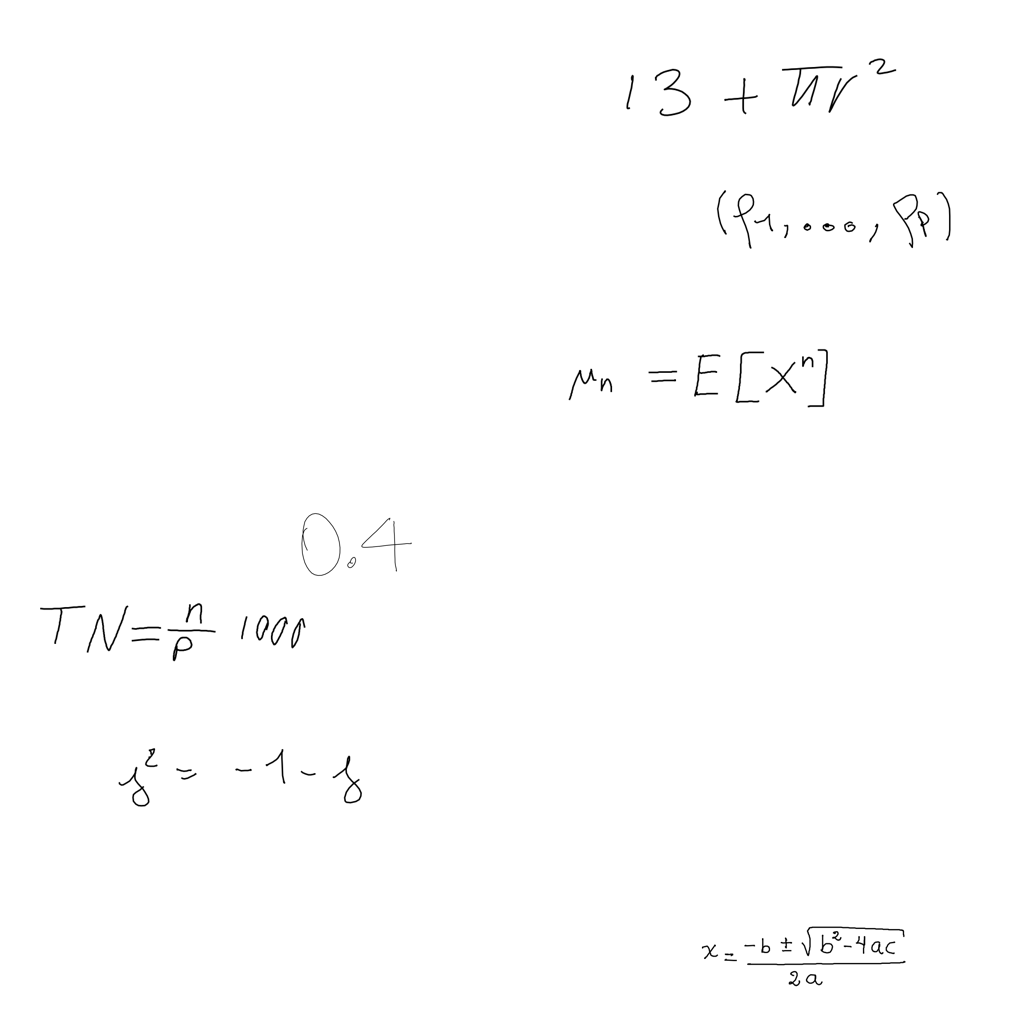 13 + πr²
(ρ₁, ..., ρₚ)
μₙ = E[Xⁿ]
0.4
TN = n/P 1000
j² = -1 - j
x = (-b ± √(b² - 4ac))/(2a)